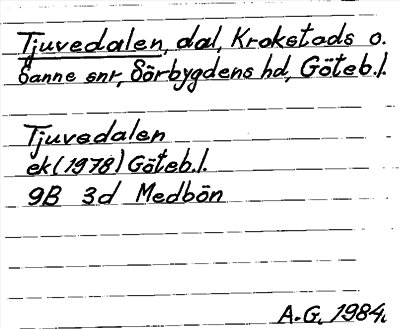 Tjuvedalen, dal, Krokstads o.
Sanne snr, Sörbygdens hd, Göteb.l.
Tjuvedalen
ek (1978) Göteb.l.
9B 3d Medbön
A.G. 1984.